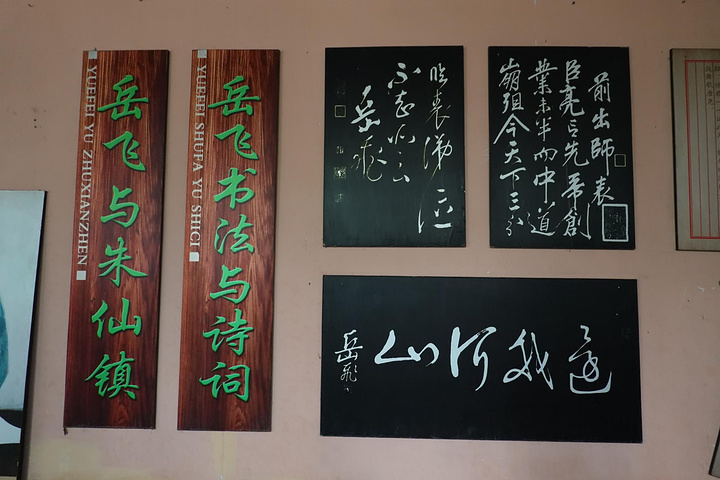 岳飞与朱仙镇
YUEFEI YU ZHUXIANZHEN
岳飞书法与诗词
YUEFEI SHUFA YU SHICI
臨表涕泣
不知所云
岳飛
前出師表
臣亮言先帝創
業未半而中道
崩殂今天下三分
還我河山
岳飛